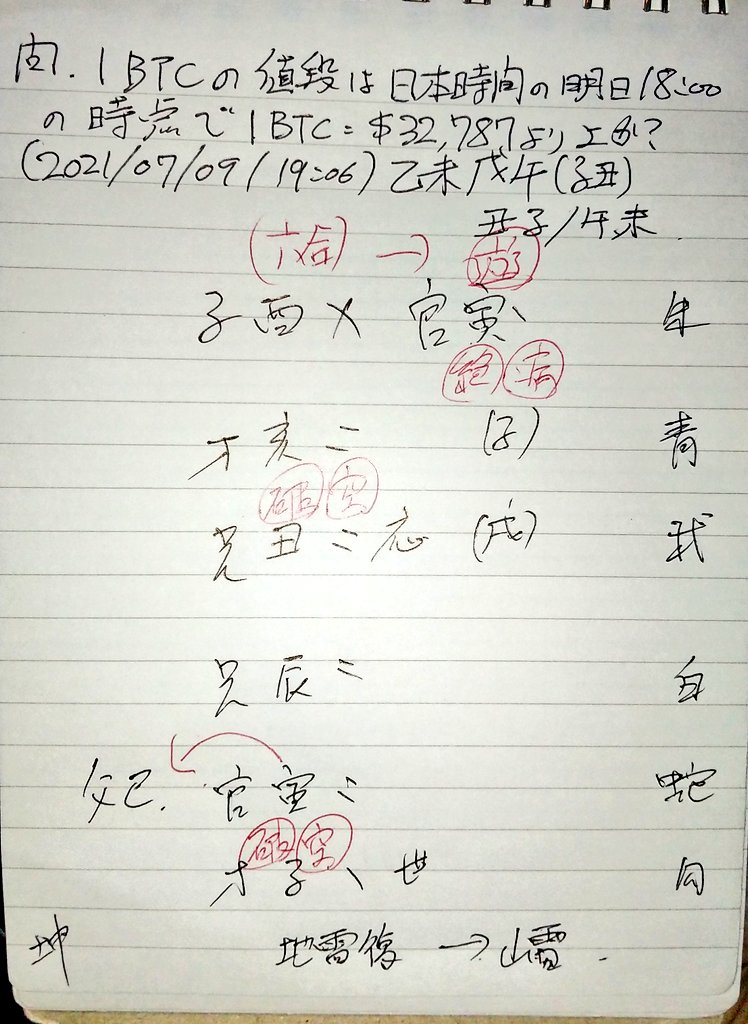 問. 1BTCの値段は日本時間の明日18:00
の時点で1BTC=$32,787より上か?
(2021/07/09/19:06) 乙未戊午(子丑)
丑子/午未
(六合) →
子酉 × 官寅、 朱
絶 病
才亥〃 (子) 青
破 空
兄丑〃応 (戌)
兄辰〃 白
父巳. 官寅〃 蛇
破 空
才子、世 勾
坤 地雷復 → 山雷.